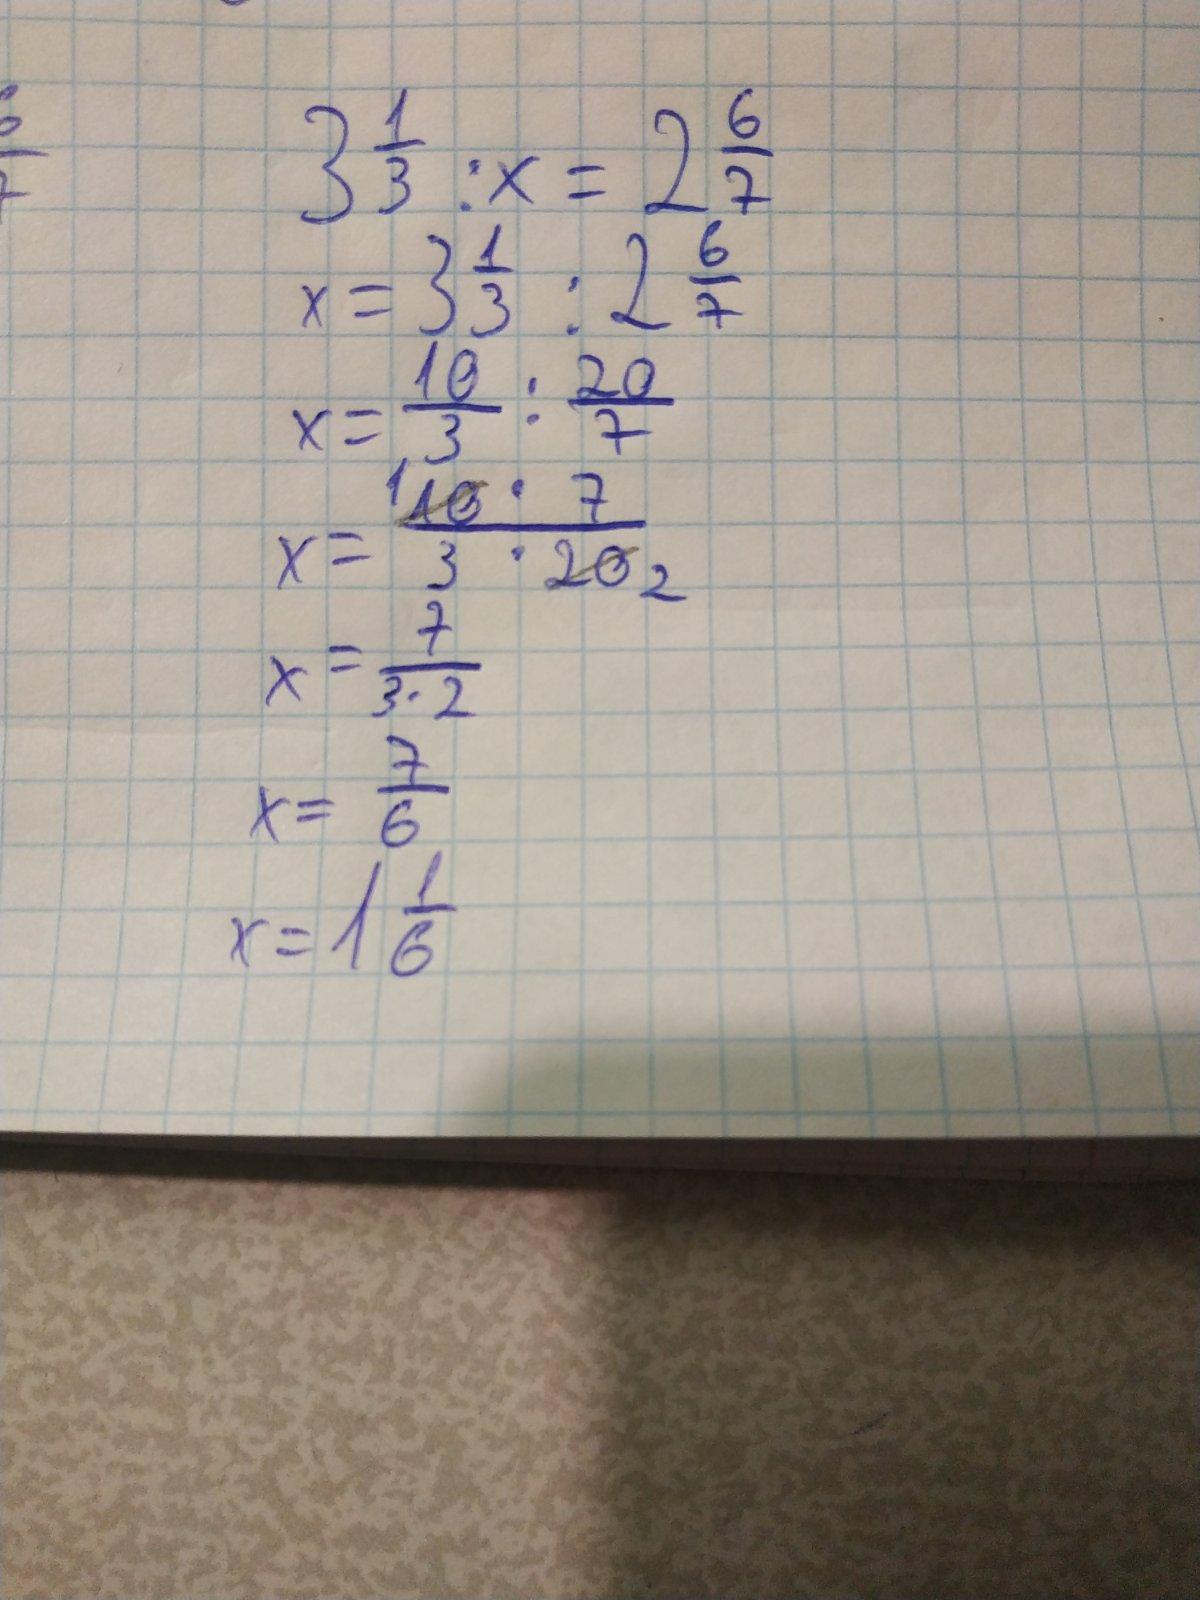 6/7
3 1/3 : x = 2 6/7
x = 3 1/3 : 2 6/7
x = 10/3 : 20/7
x = 1 10 · 7 / 3 · 20 2
x = 7 / 3 · 2
x = 7/6
x = 1 1/6